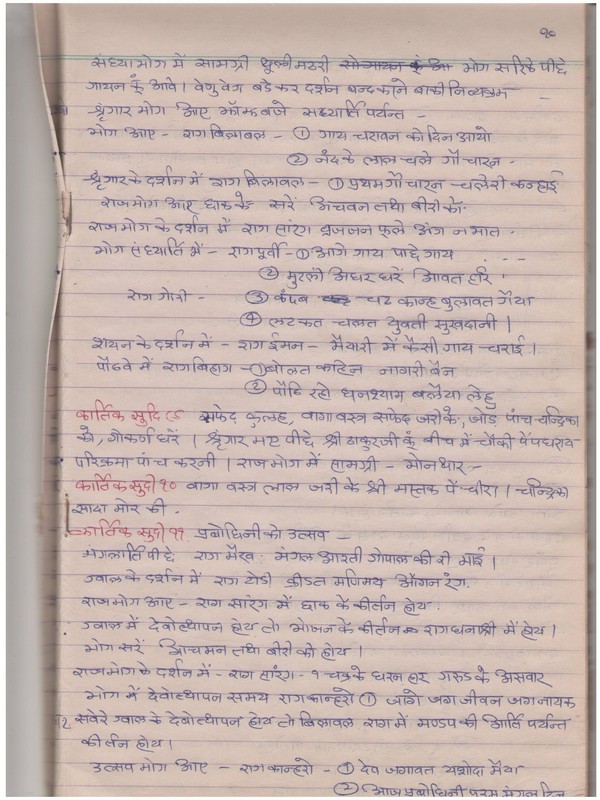 १०
संध्याभोग में सामग्री थूली मठरी भोग सरिके पीछे
गायन कुं आवे। वेणु वेग बडे कर दर्शन बन्द करने बाकी नित्यक्रम
श्रृंगार भोग आए झाँझ बजे सन्ध्यार्ति पर्यन्त -
भोग आए - राग बिलावल - ① गाय चरावन को दिन आयो
② नंद के लाल चले गौ चारन -
श्रृंगार के दर्शन में राग बिलावल - ① प्रथम गौ चारन चलेरी कन्हाई
राजभोग आए छाक के सरें अचवन तथा बीरी के
राजभोग के दर्शन में राग सारंग। व्रजजन फूले अंग न मात -
भोग संध्यार्ति में - राग पूर्वी - ① आगे गाय पाछे गाय
② मुरली अधर धरें आवत हरि।
राग गोरी - ③ कदंब चढ कान्ह बुलावत गैया
④ लटकत चलत युवती सुखदानी।
शयन के दर्शन में - राग ईमन - मैयारी में कैसी गाय चराई।
पौढवे में राग बिहाग - ① बोलत काहिन नागरी बैन
② पौढि रहो घनश्याम बलैया लेहु
कार्तिक सुदि ९ सफेद कुल्लह, वागा वस्त्र सफेद जरी के, जोड पांच चन्द्रिका
को, गोकर्ण धरें। श्रृंगार भए पीछे श्री ठाकुरजी कुं बीच में चौकी पें पधराय
परिक्रमा पांच करनी। राजभोग में सामग्री - मोनथार -
कार्तिक सुदी १० वागा वस्त्र लाल जरी के श्री मस्तक पें चीरा। चन्द्रिका
सादा मोर की -
कार्तिक सुदी ११ प्रबोधिनी को उत्सव -
मंगलार्ति पीछे राग भैरव - मंगल आरती गोपाल की री माई।
ग्वाल के दर्शन में राग टोडी क्रीडत मणिमय आँगन रंग -
राजभोग आए - राग सारंग में छाक के कीर्तन होय -
ग्वाल में देवोत्थापन होय तो भोजन के कीर्तन राग धनाश्री में होय।
भोग सरें आचमन तथा बीरी को होय।
राजभोग के दर्शन में - राग सारंग - १ चक्र के धरन हार गरुड के असवार
भोग में देवोत्थापन समय राग कान्हरो ① जागे जग जीवन जगनायक
सवेरे ग्वाल के देवोत्थापन होय तो बिलावल राग में मण्डप की आर्ति पर्यन्त
कीर्तन होय।
उत्सव भोग आए - राग कान्हरो - ① देव जगावत यशोदा मैया
② आज प्रबोधिनी परम मंगल दिन